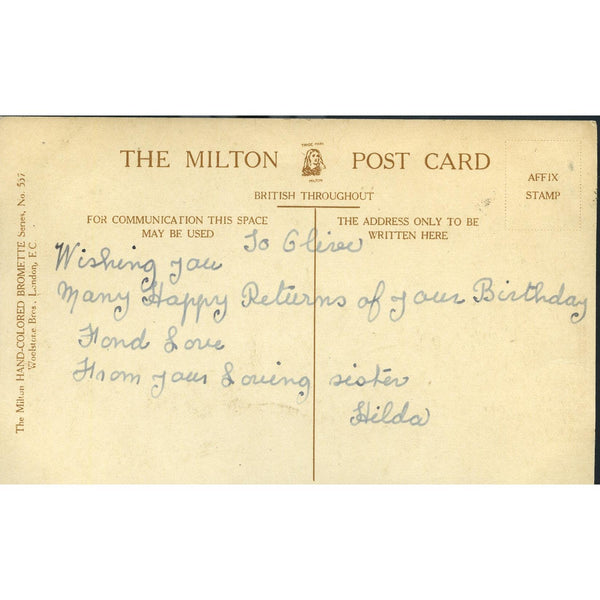 THE MILTON POST CARD
TRADE MARK
MILTON
BRITISH THROUGHOUT
AFFIX
STAMP
FOR COMMUNICATION THIS SPACE
MAY BE USED
THE ADDRESS ONLY TO BE
WRITTEN HERE
To Olive
Wishing you
Many Happy Returns of your Birthday
Fond Love
From your Loving sister
Hilda
The Milton HAND-COLORED BROMETTE Series, No. 557
Woolstone Bros., London, E.C.